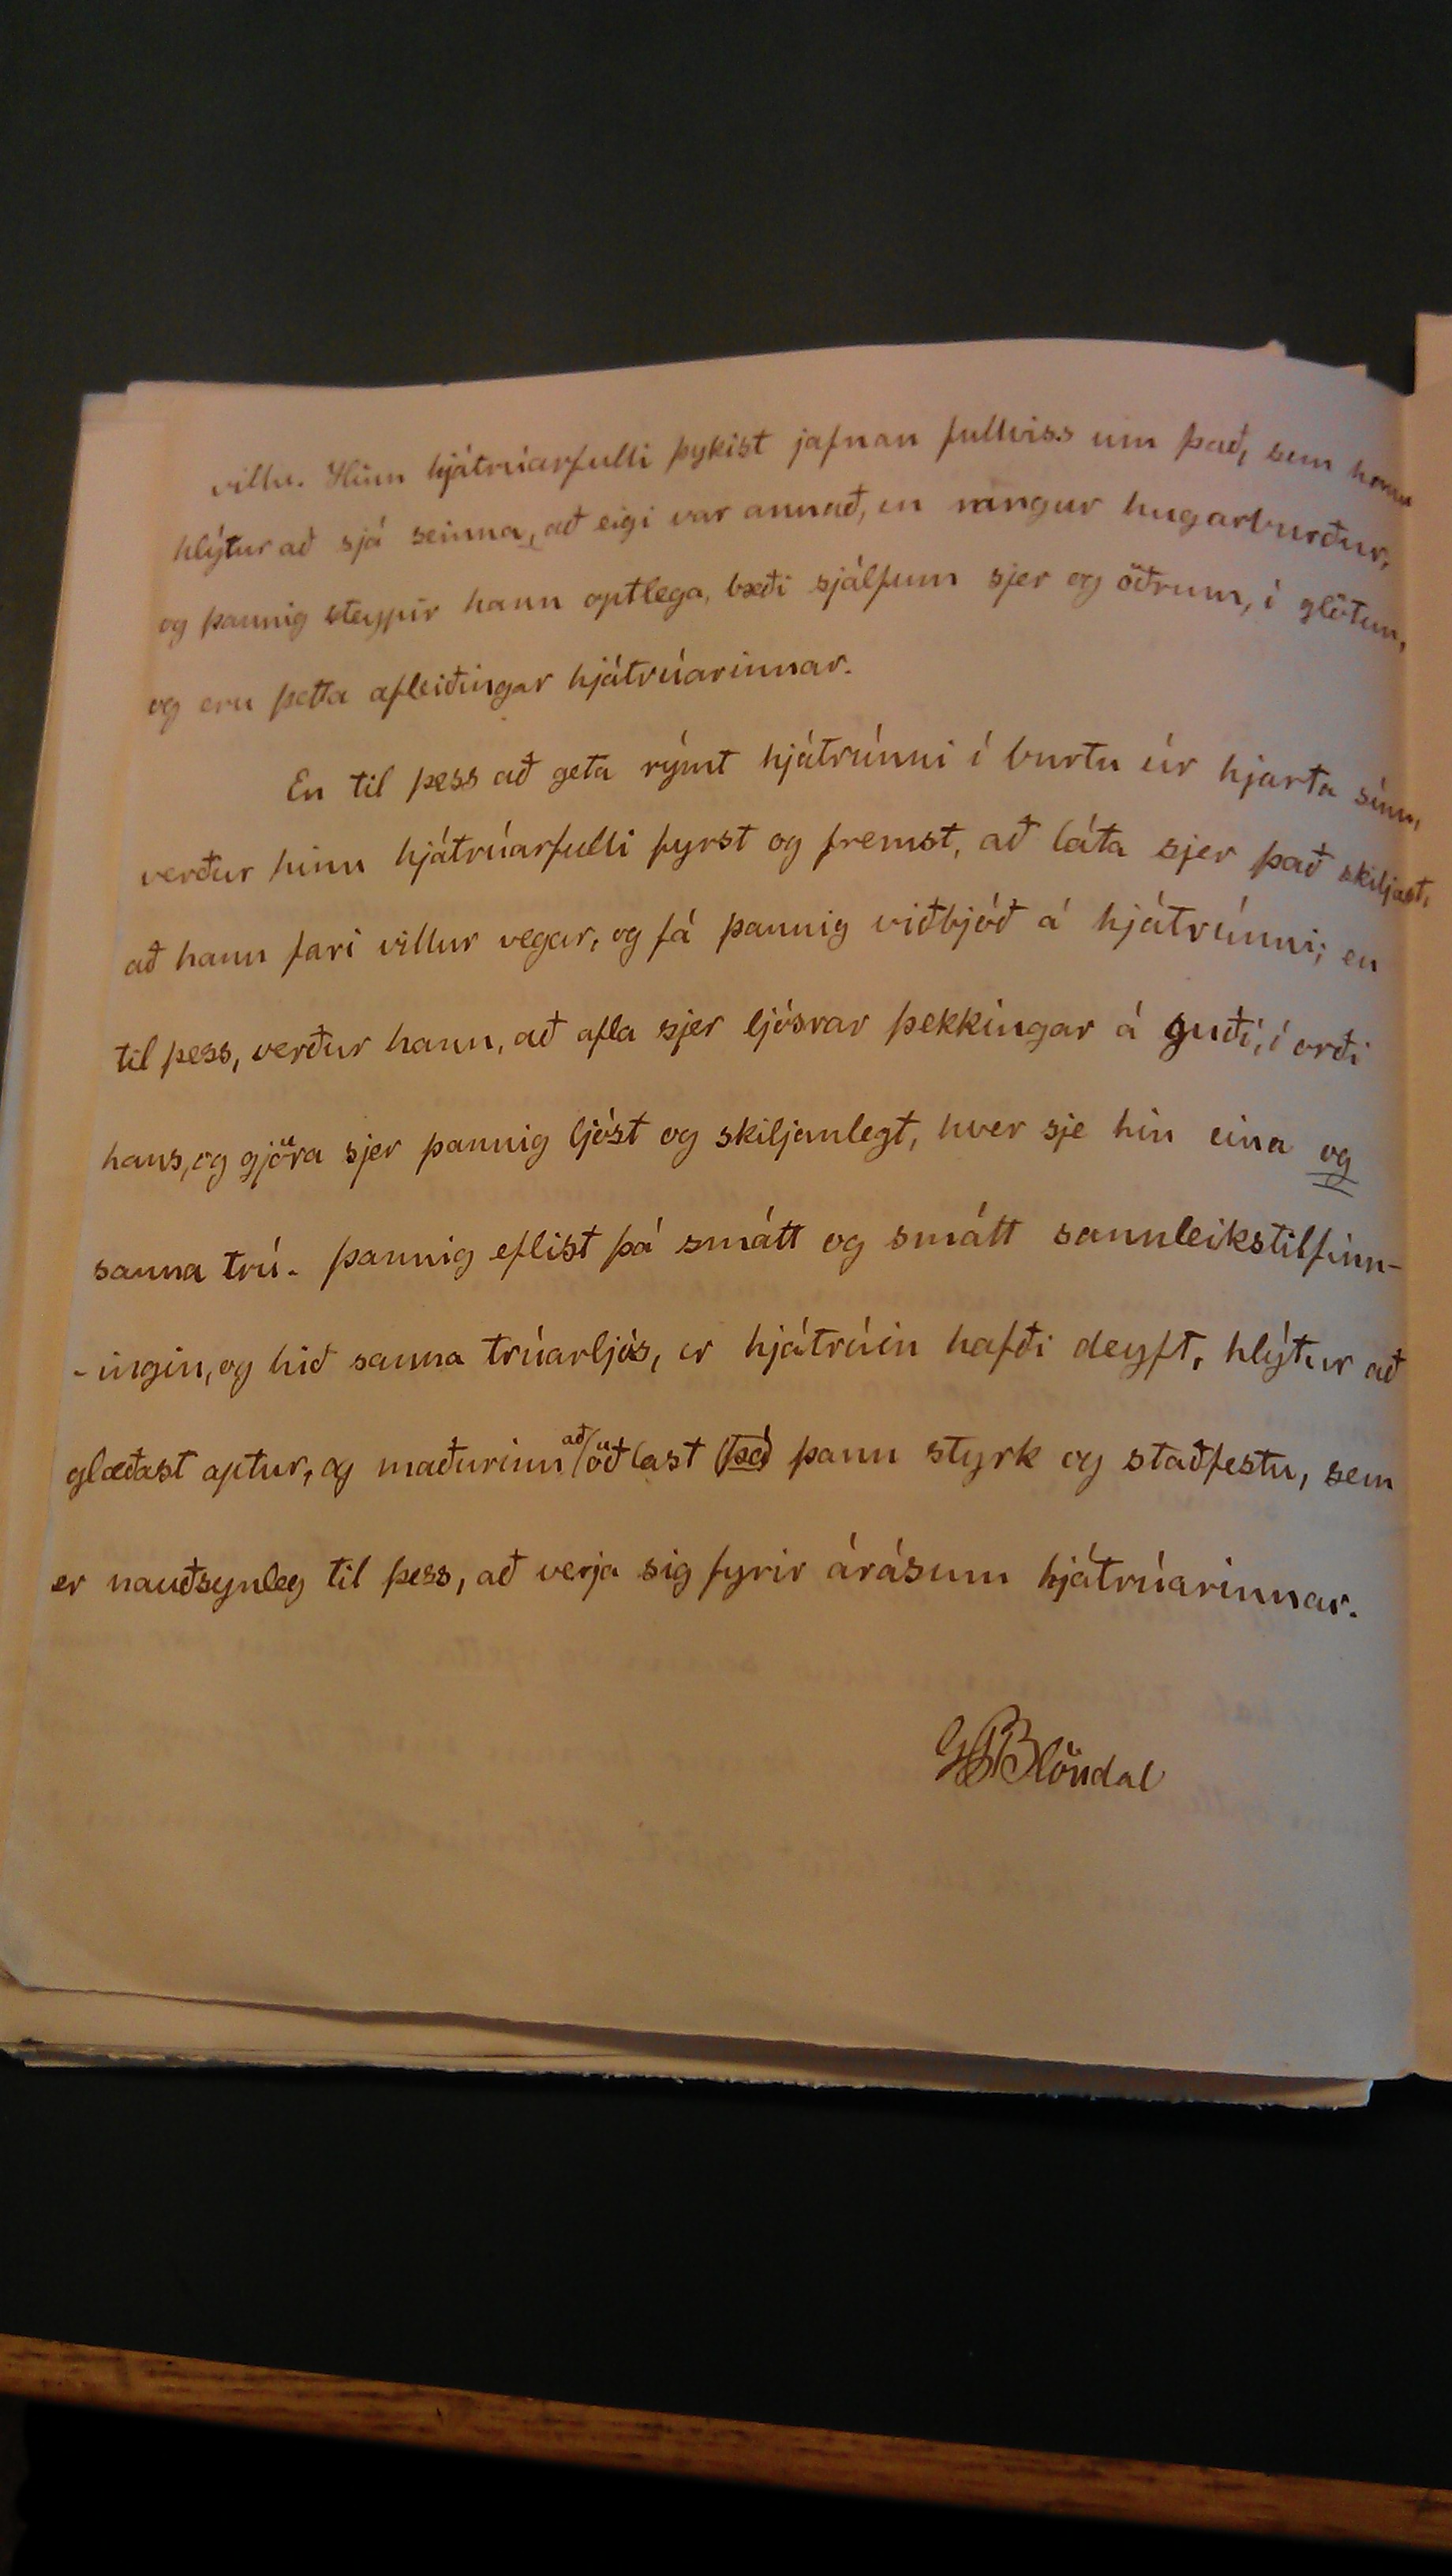 villu. Hinn hjátrúarfulli þykist jafnan fullviss um það, sem hann
hlýtur að sjá seinna, að eigi var annað, en rángur hugarburður,
og þannig steypir hann optlega, bæði sjálfum sjer og öðrum, í glötun,
og eru þetta afleiðingar hjátrúarinnar.
En til þess að geta rýmt hjátrúnni í burtu úr hjarta sínu,
verður hinn hjátrúarfulli fyrst og fremst, að láta sjer það skiljast,
að hann fari villur vegar, og fá þannig viðbjóð á hjátrúnni; en
til þess, verður hann, að afla sjer ljósrar þekkingar á guði, í orði
hans, og gjöra sjer þannig ljóst og skiljanlegt, hver sje hin eina og
sanna trú. þannig eflist þá smátt og smátt sannleikstilfinn-
-ingin, og hið sanna trúarljós, er hjátrúin hafði deyft, hlýtur að
glæðast aptur, og maðurinn að öðlast það þann styrk og staðfestu, sem
er nauðsynleg til þess, að verja sig fyrir árásum hjátrúarinnar.
Blöndal